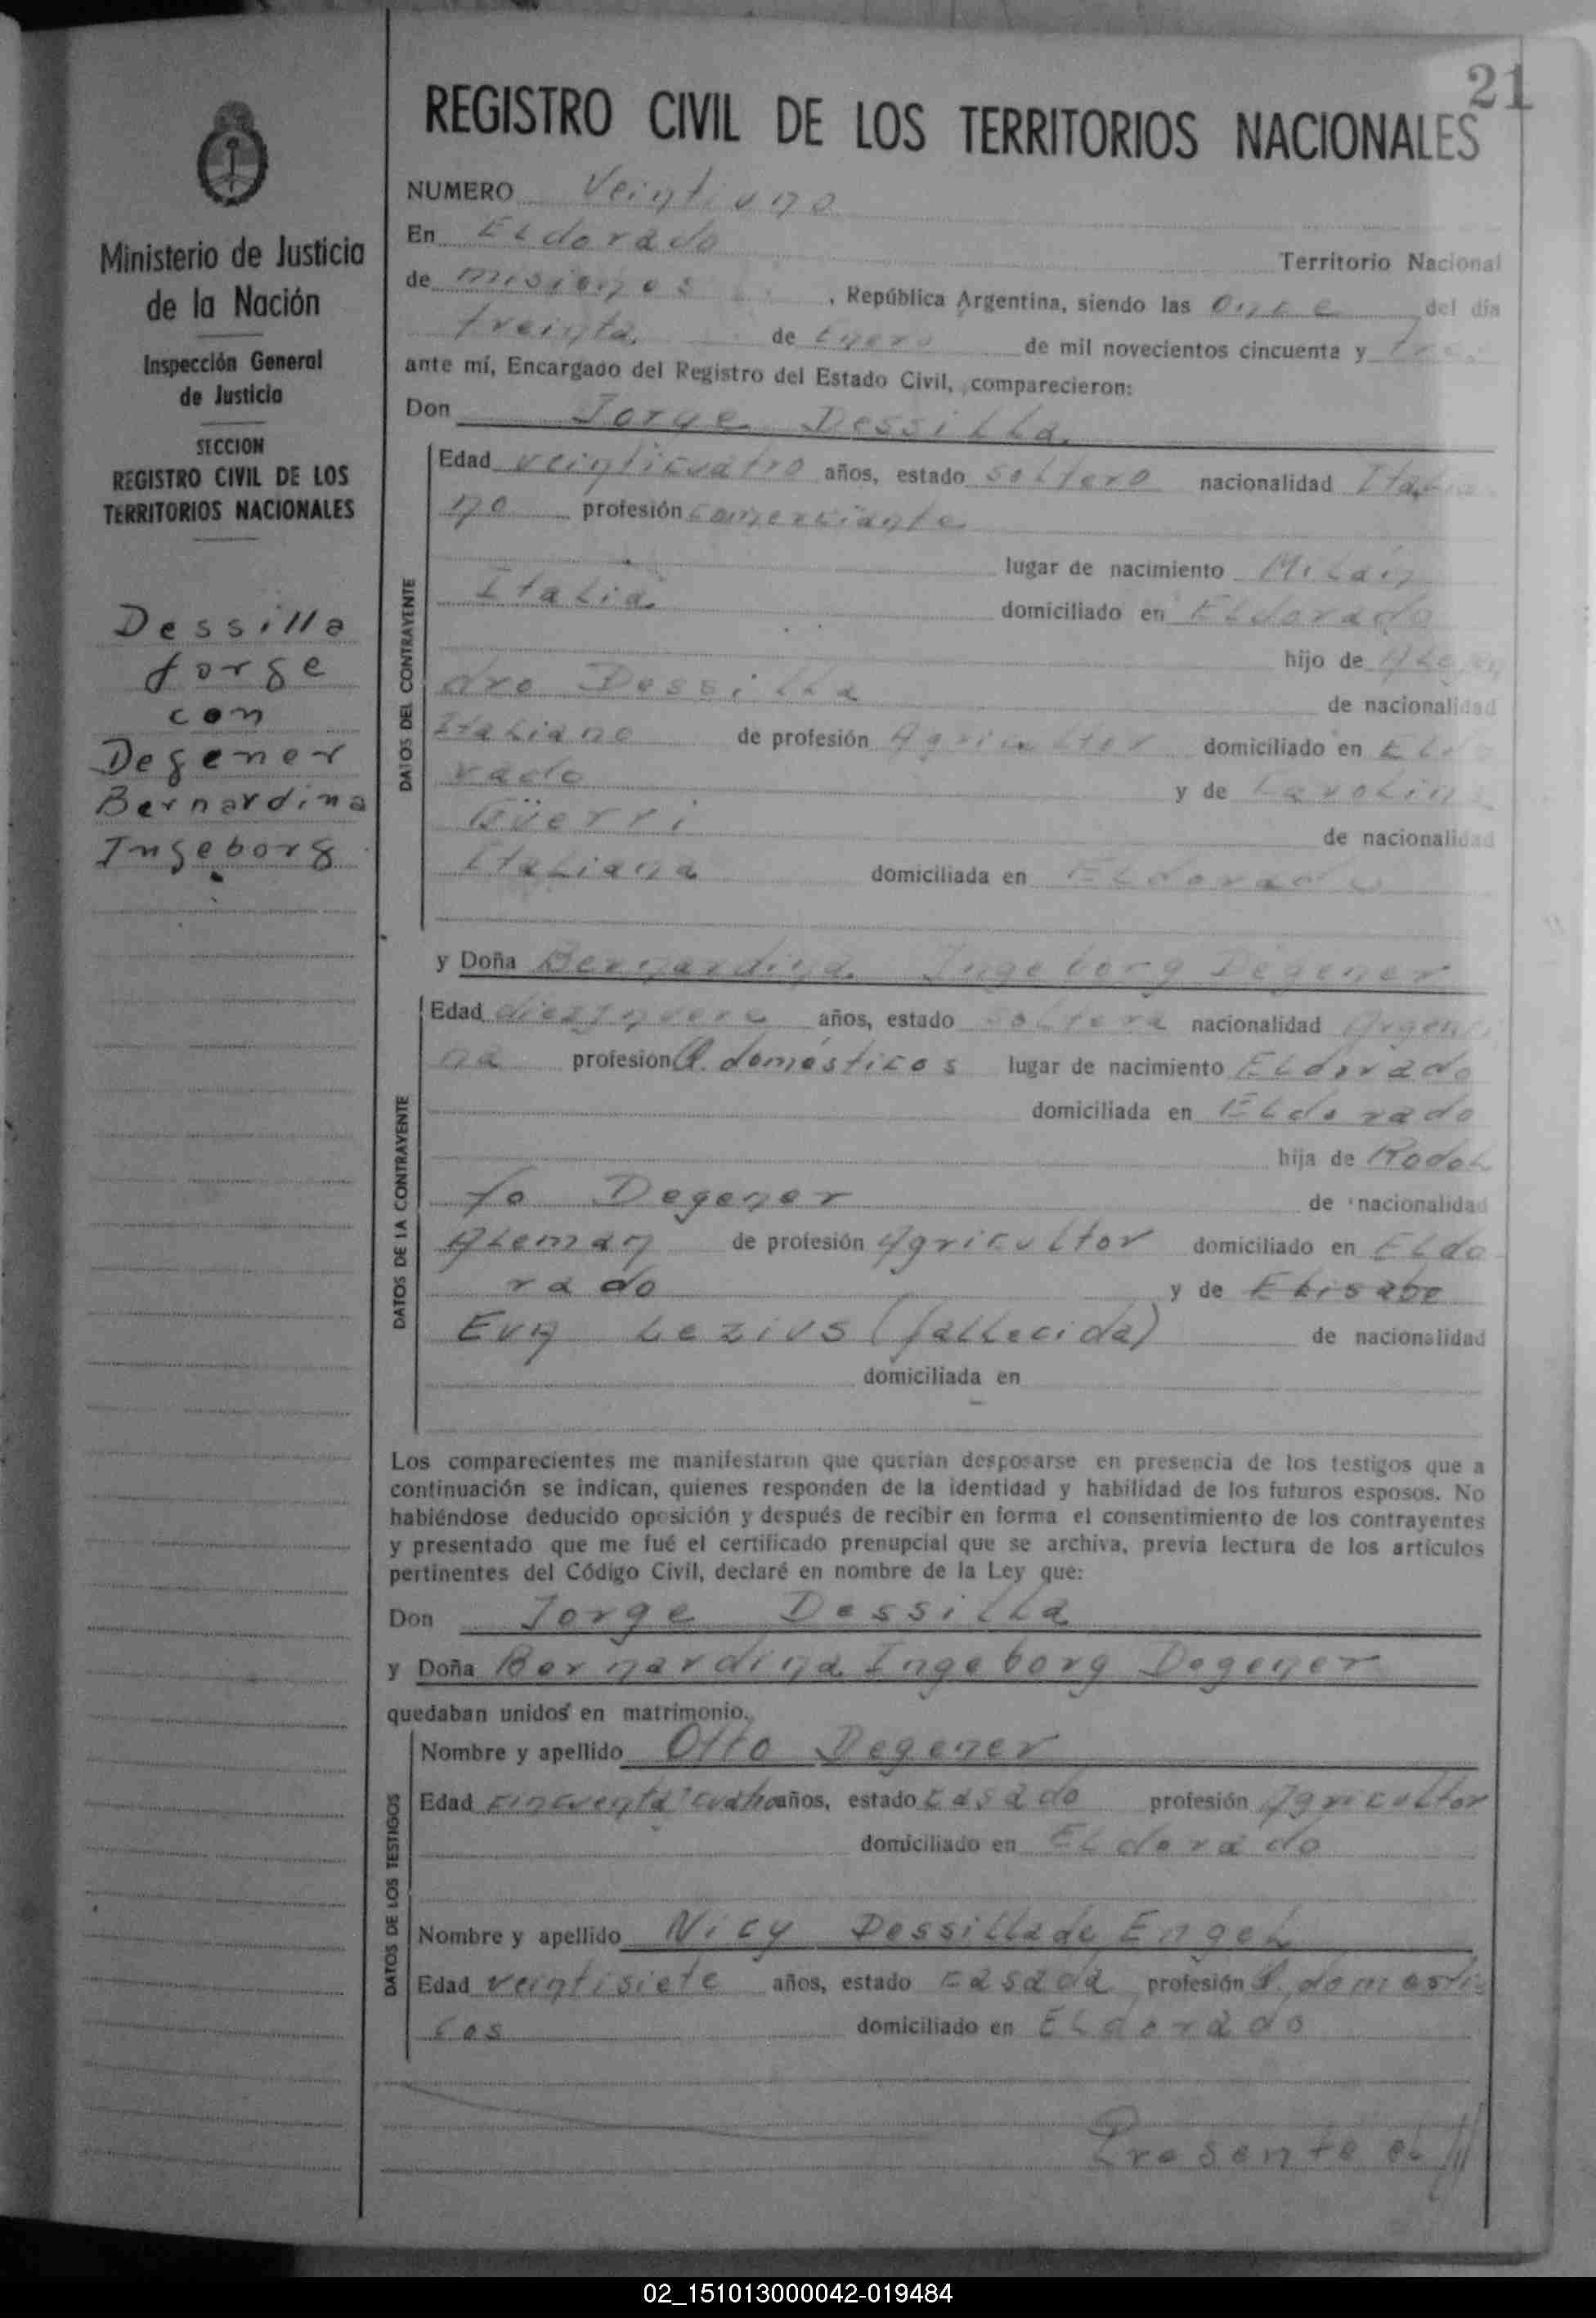 21
REGISTRO CIVIL DE LOS TERRITORIOS NACIONALES
Ministerio de Justicia
de la Nación
Inspección General
de Justicia
SECCION
REGISTRO CIVIL DE LOS
TERRITORIOS NACIONALES
Dessilla
Jorge
con
Degener
Bernardina
Ingeborg
NUMERO Veintiuno
En Eldorado Territorio Nacional
de misiones, República Argentina, siendo las once del día
treinta de Enero de mil novecientos cincuenta y tres
ante mí, Encargado del Registro del Estado Civil, comparecieron:
Don Jorge Dessilla
DATOS DEL CONTRAYENTE
Edad veinticuatro años, estado soltero nacionalidad Italia
no profesión comerciante
lugar de nacimiento Milán
Italia domiciliado en Eldorado
hijo de Alejan
dro Dessilla de nacionalidad
Italiano de profesión Agricultor domiciliado en Eldo
rado y de Carolina
Güerri de nacionalidad
Italiana domiciliada en Eldorado
y Doña Bernardina Ingeborg Degener
DATOS DE LA CONTRAYENTE
Edad diezinueve años, estado soltera nacionalidad Argenti
na profesion Q. domésticos lugar de nacimiento Eldorado
domiciliada en Eldorado
hija de Rodol
fo Degener de nacionalidad
Aleman de profesión Agricultor domiciliado en Eldo
rado y de Elisabe
Eva Lezius (fallecida) de nacionalidad
domiciliada en
Los comparecientes me manifestaron que querían desposarse en presencia de los testigos que a
continuación se indican, quienes responden de la identidad y habilidad de los futuros esposos. No
habiéndose deducido oposición y después de recibir en forma el consentimiento de los contrayentes
y presentado que me fué el certificado prenupcial que se archiva, previa lectura de los artículos
pertinentes del Código Civil, declaré en nombre de la Ley que:
Don Jorge Dessilla
y Doña Bernardina Ingeborg Degener
quedaban unidos en matrimonio.
DATOS DE LOS TESTIGOS
Nombre y apellido Otto Degener
Edad cincuenta cuatro años, estado casado profesión Agricultor
domiciliado en Eldorado
Nombre y apellido Nicy Dessilla de Engel
Edad veintisiete años, estado casada profesión Q. domesti
cos domiciliado en Eldorado
Presente el
02_151013000042-019484